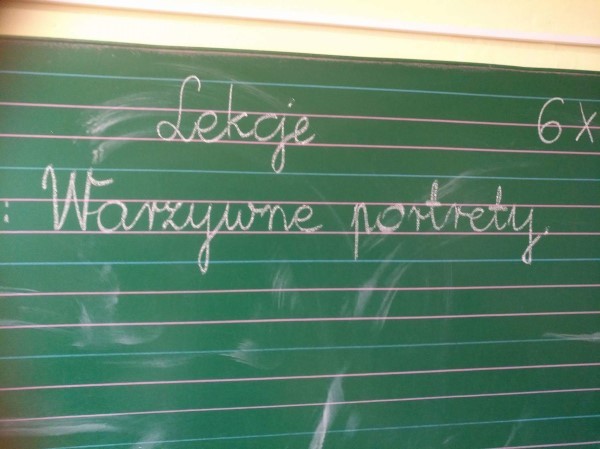 Lekcje 6 X
: Warzywne portrety